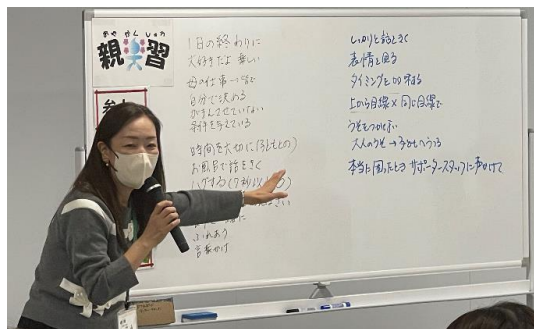 おや がく しゅう
親楽習
1日の終わりに
大好きだよ 優しい
母の仕事
自分で決める
がまんさせていない
条件を与えている
時間を大切に(子どもとの)
お風呂で話をきく
ハグする(7秒以
ふれあう
言葉かけ
しっかりと話をきく
表情を見る
タイミングを
上から目線× 同じ目線で
うそをつかない
大人のうそ→子どもへうつる
本当に困ったとき サポータースタッフに声かけて